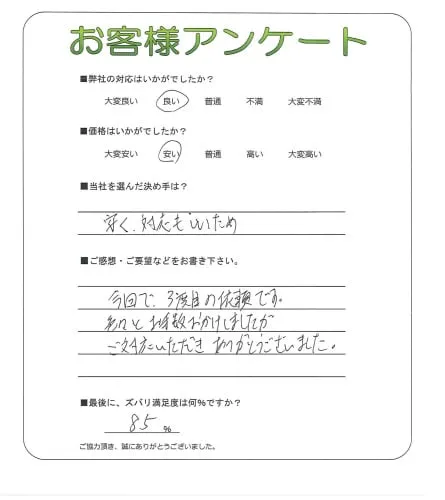 お客様アンケート
■弊社の対応はいかがでしたか?
大変良い 良い 普通 不満 大変不満
■価格はいかがでしたか?
大変安い 安い 普通 高い 大変高い
■当社を選んだ決め手は?
安く、対応もいいため
■ご感想・ご要望などをお書き下さい。
今回で、3度目の依頼です。
色々とお手数おかけしましたが
ご対応いただきありがとうございました。
■最後に、ズバリ満足度は何%ですか?
85 %
ご協力頂き、誠にありがとうございました。